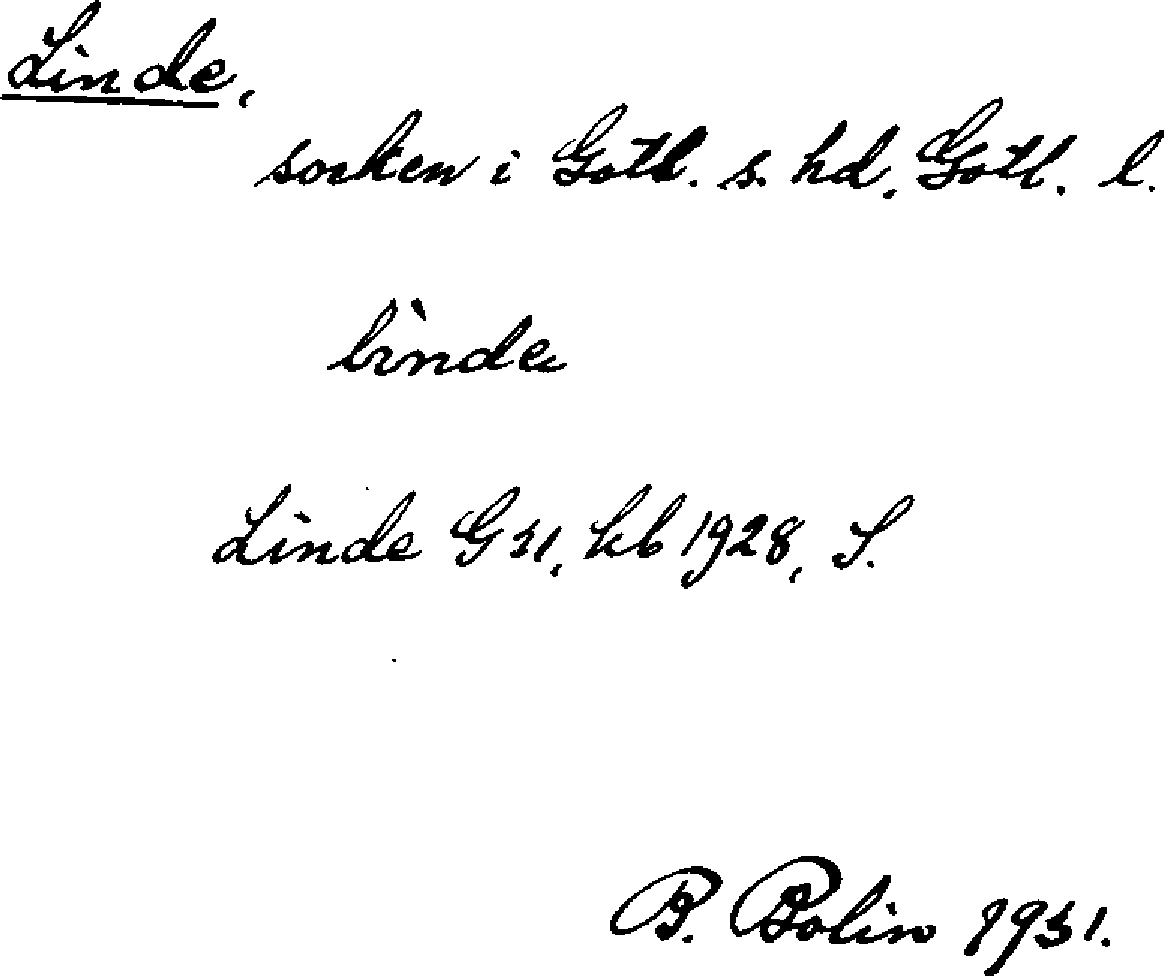 Linde,
socken i Gotl. s. hd, Gotl. l.
lìnde
Linde Gsl, kb 1928, S.
B. Bolin 1931.